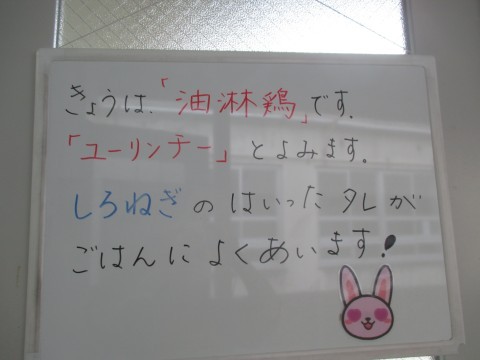 きょうは、「油淋鶏」です。
「ユーリンチー」とよみます。
しろねぎのはいったタレが
ごはんによくあいます!